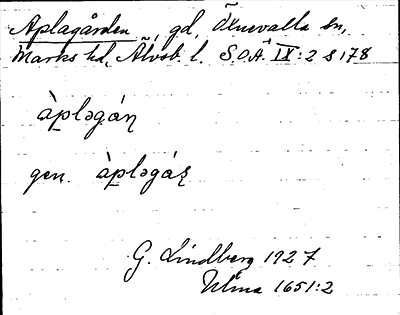 Aplagården, gd, Öxnevalla sn,
Marks hd, Älvsb. l. S.O.Ä IX:2 s 178
àpləgáṇ
gen. àpləgáș
G. Lindberg 1927
Ulma 1651:2